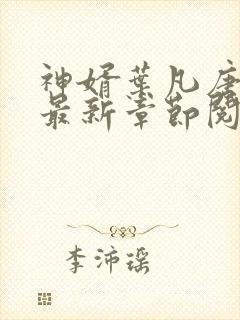 神婿葉凡唐
最新章節閱
李沛瑶